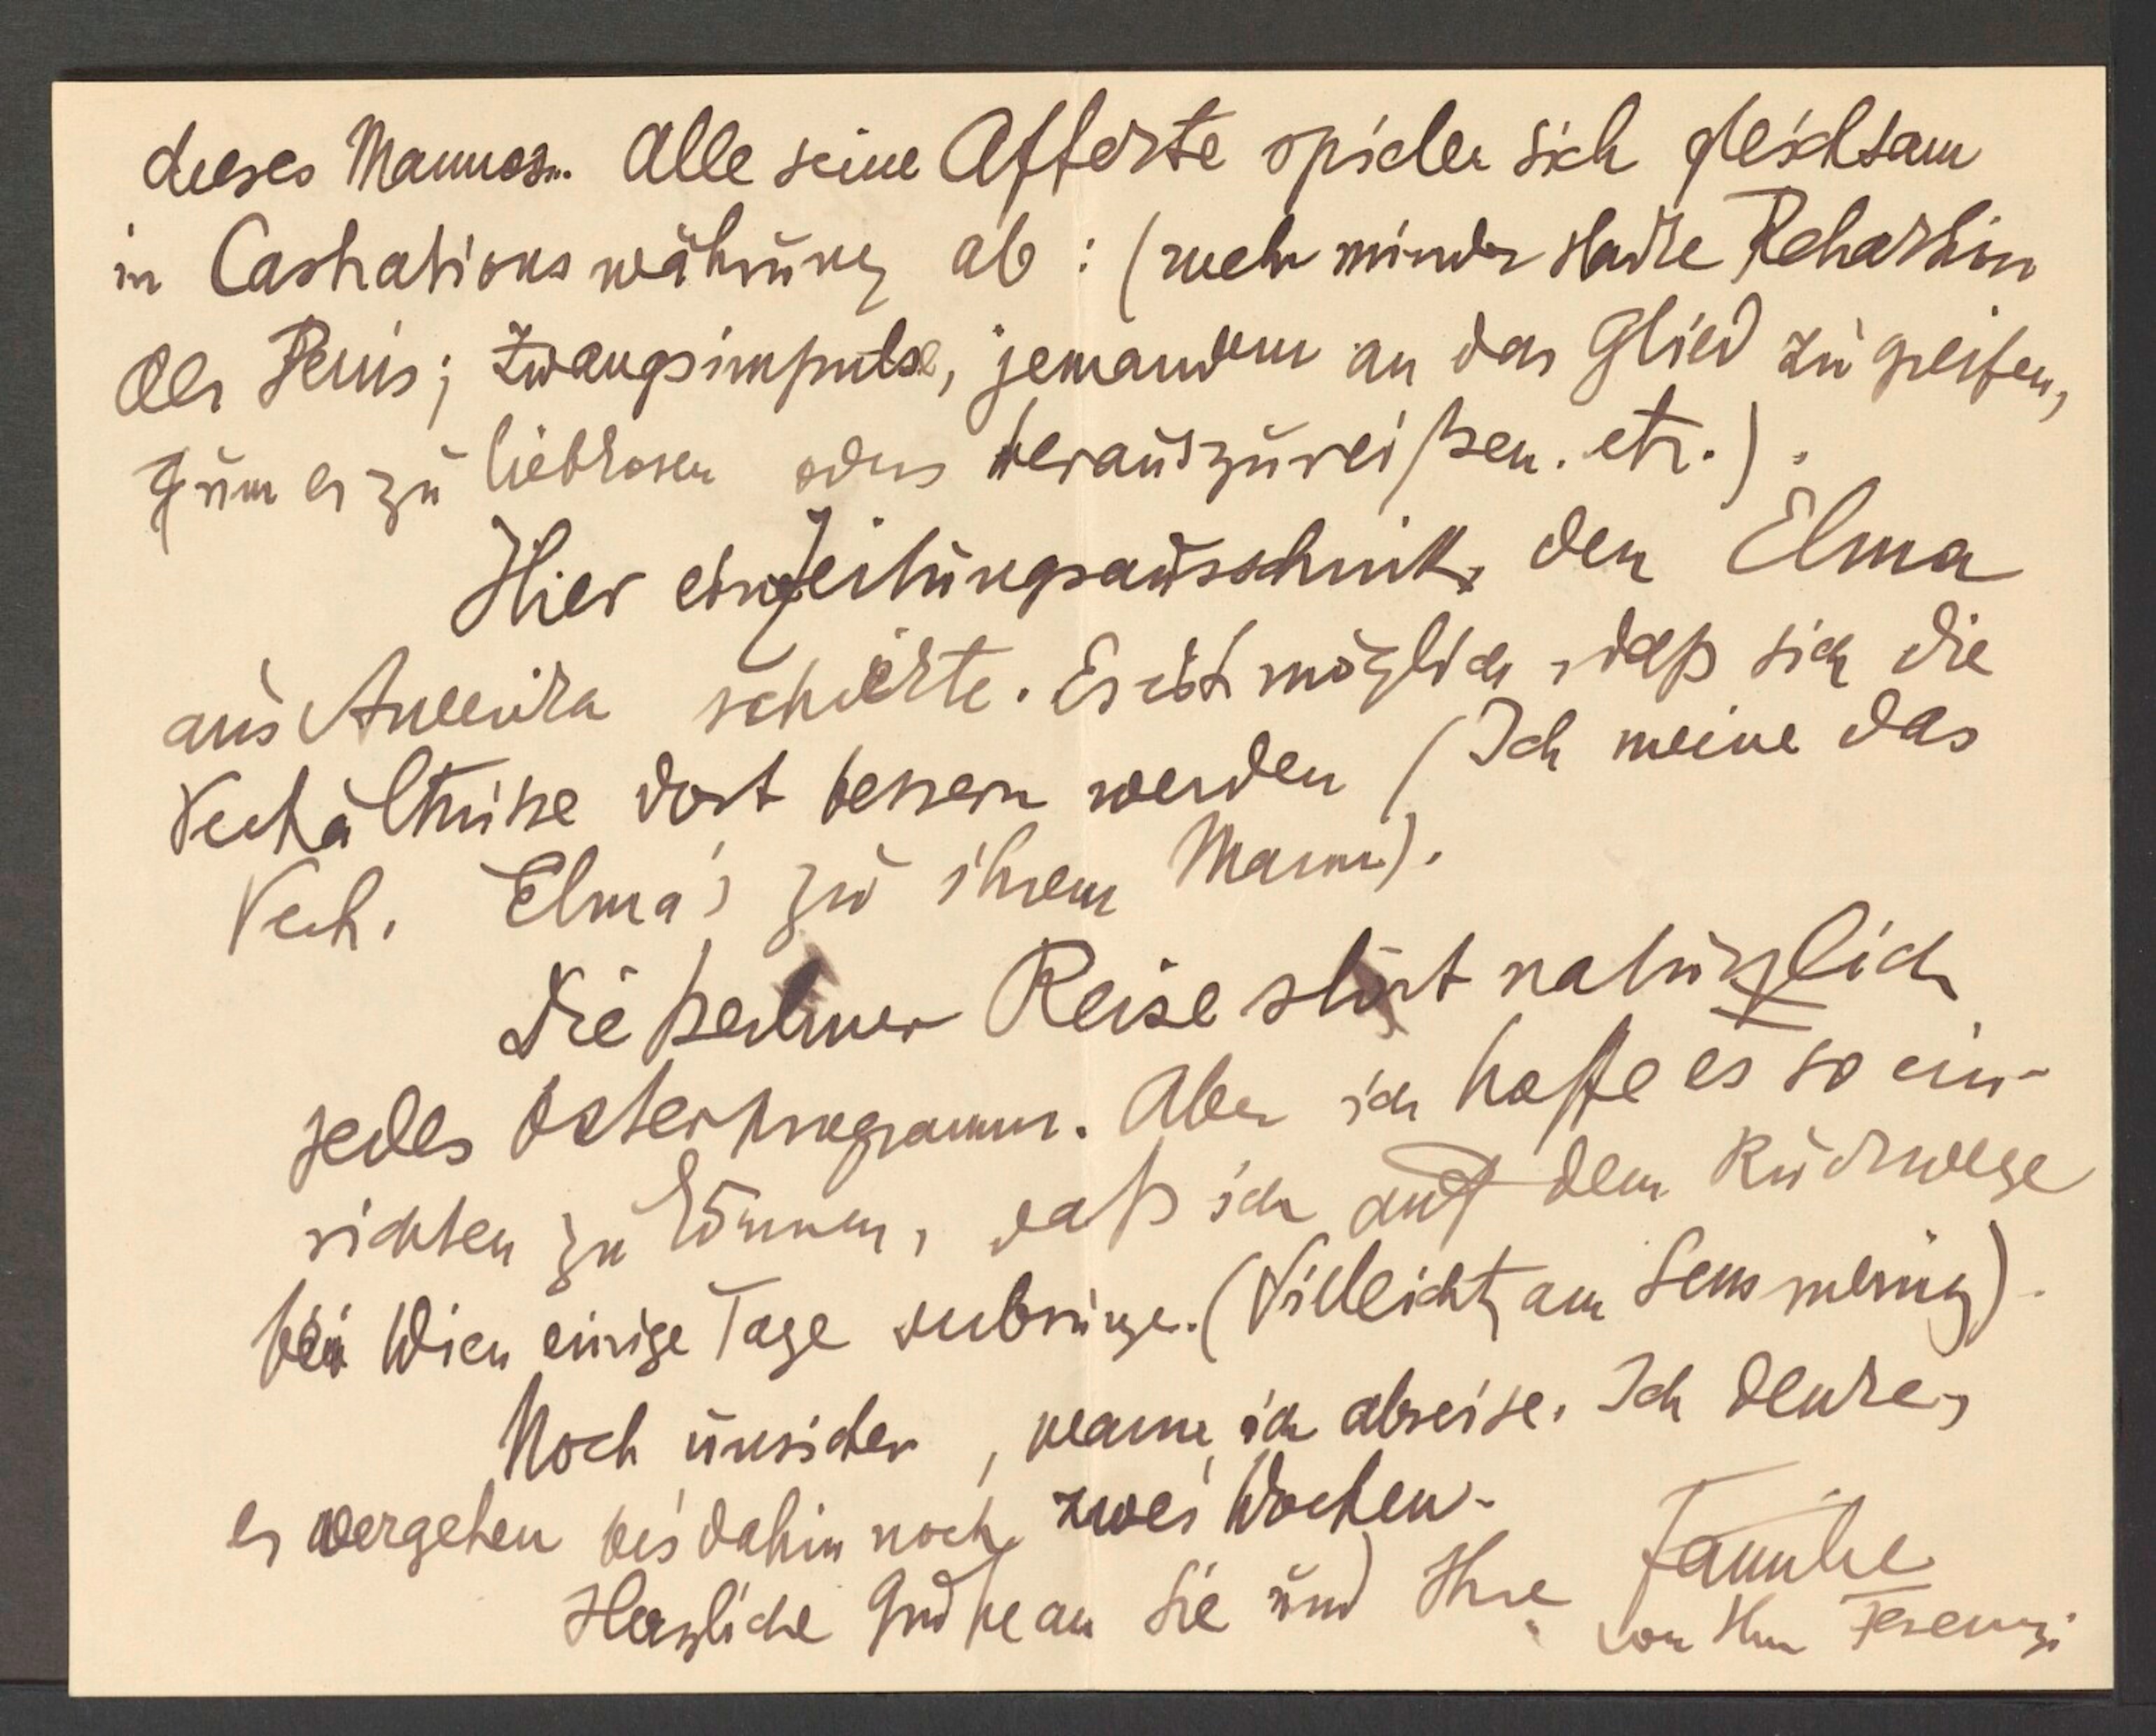 dieses Mannes.. Alle seine Affekte spielen sich gleichsam
in Castrationswährung ab : (mehr minder starke Retraktion
des Penis; Zwangsimpulse, jemandem an das Glied zu greifen,
um es zu liebkosen oder herauszureißen. etc.).
Hier ein Zeitungsausschnitt, den Elma
aus Amerika schickte. Es ist möglich, daß sich die
Verhältnisse dort bessern werden (Ich meine das
Verh. Elma's zu ihrem Mann).
Die Berliner Reise stört natürlich
jedes Osterprogramm. Aber ich hoffe es so ein-
richten zu können, daß ich auf dem Rückwege
bei Wien einige Tage zubringe. (Vielleicht am Semmering).
Noch unsicher, wann ich abreise. Ich denke,
es vergehen bis dahin noch zwei Wochen.
Herzliche Grüße an Sie und Ihre Familie
von Ihrem Ferenczi